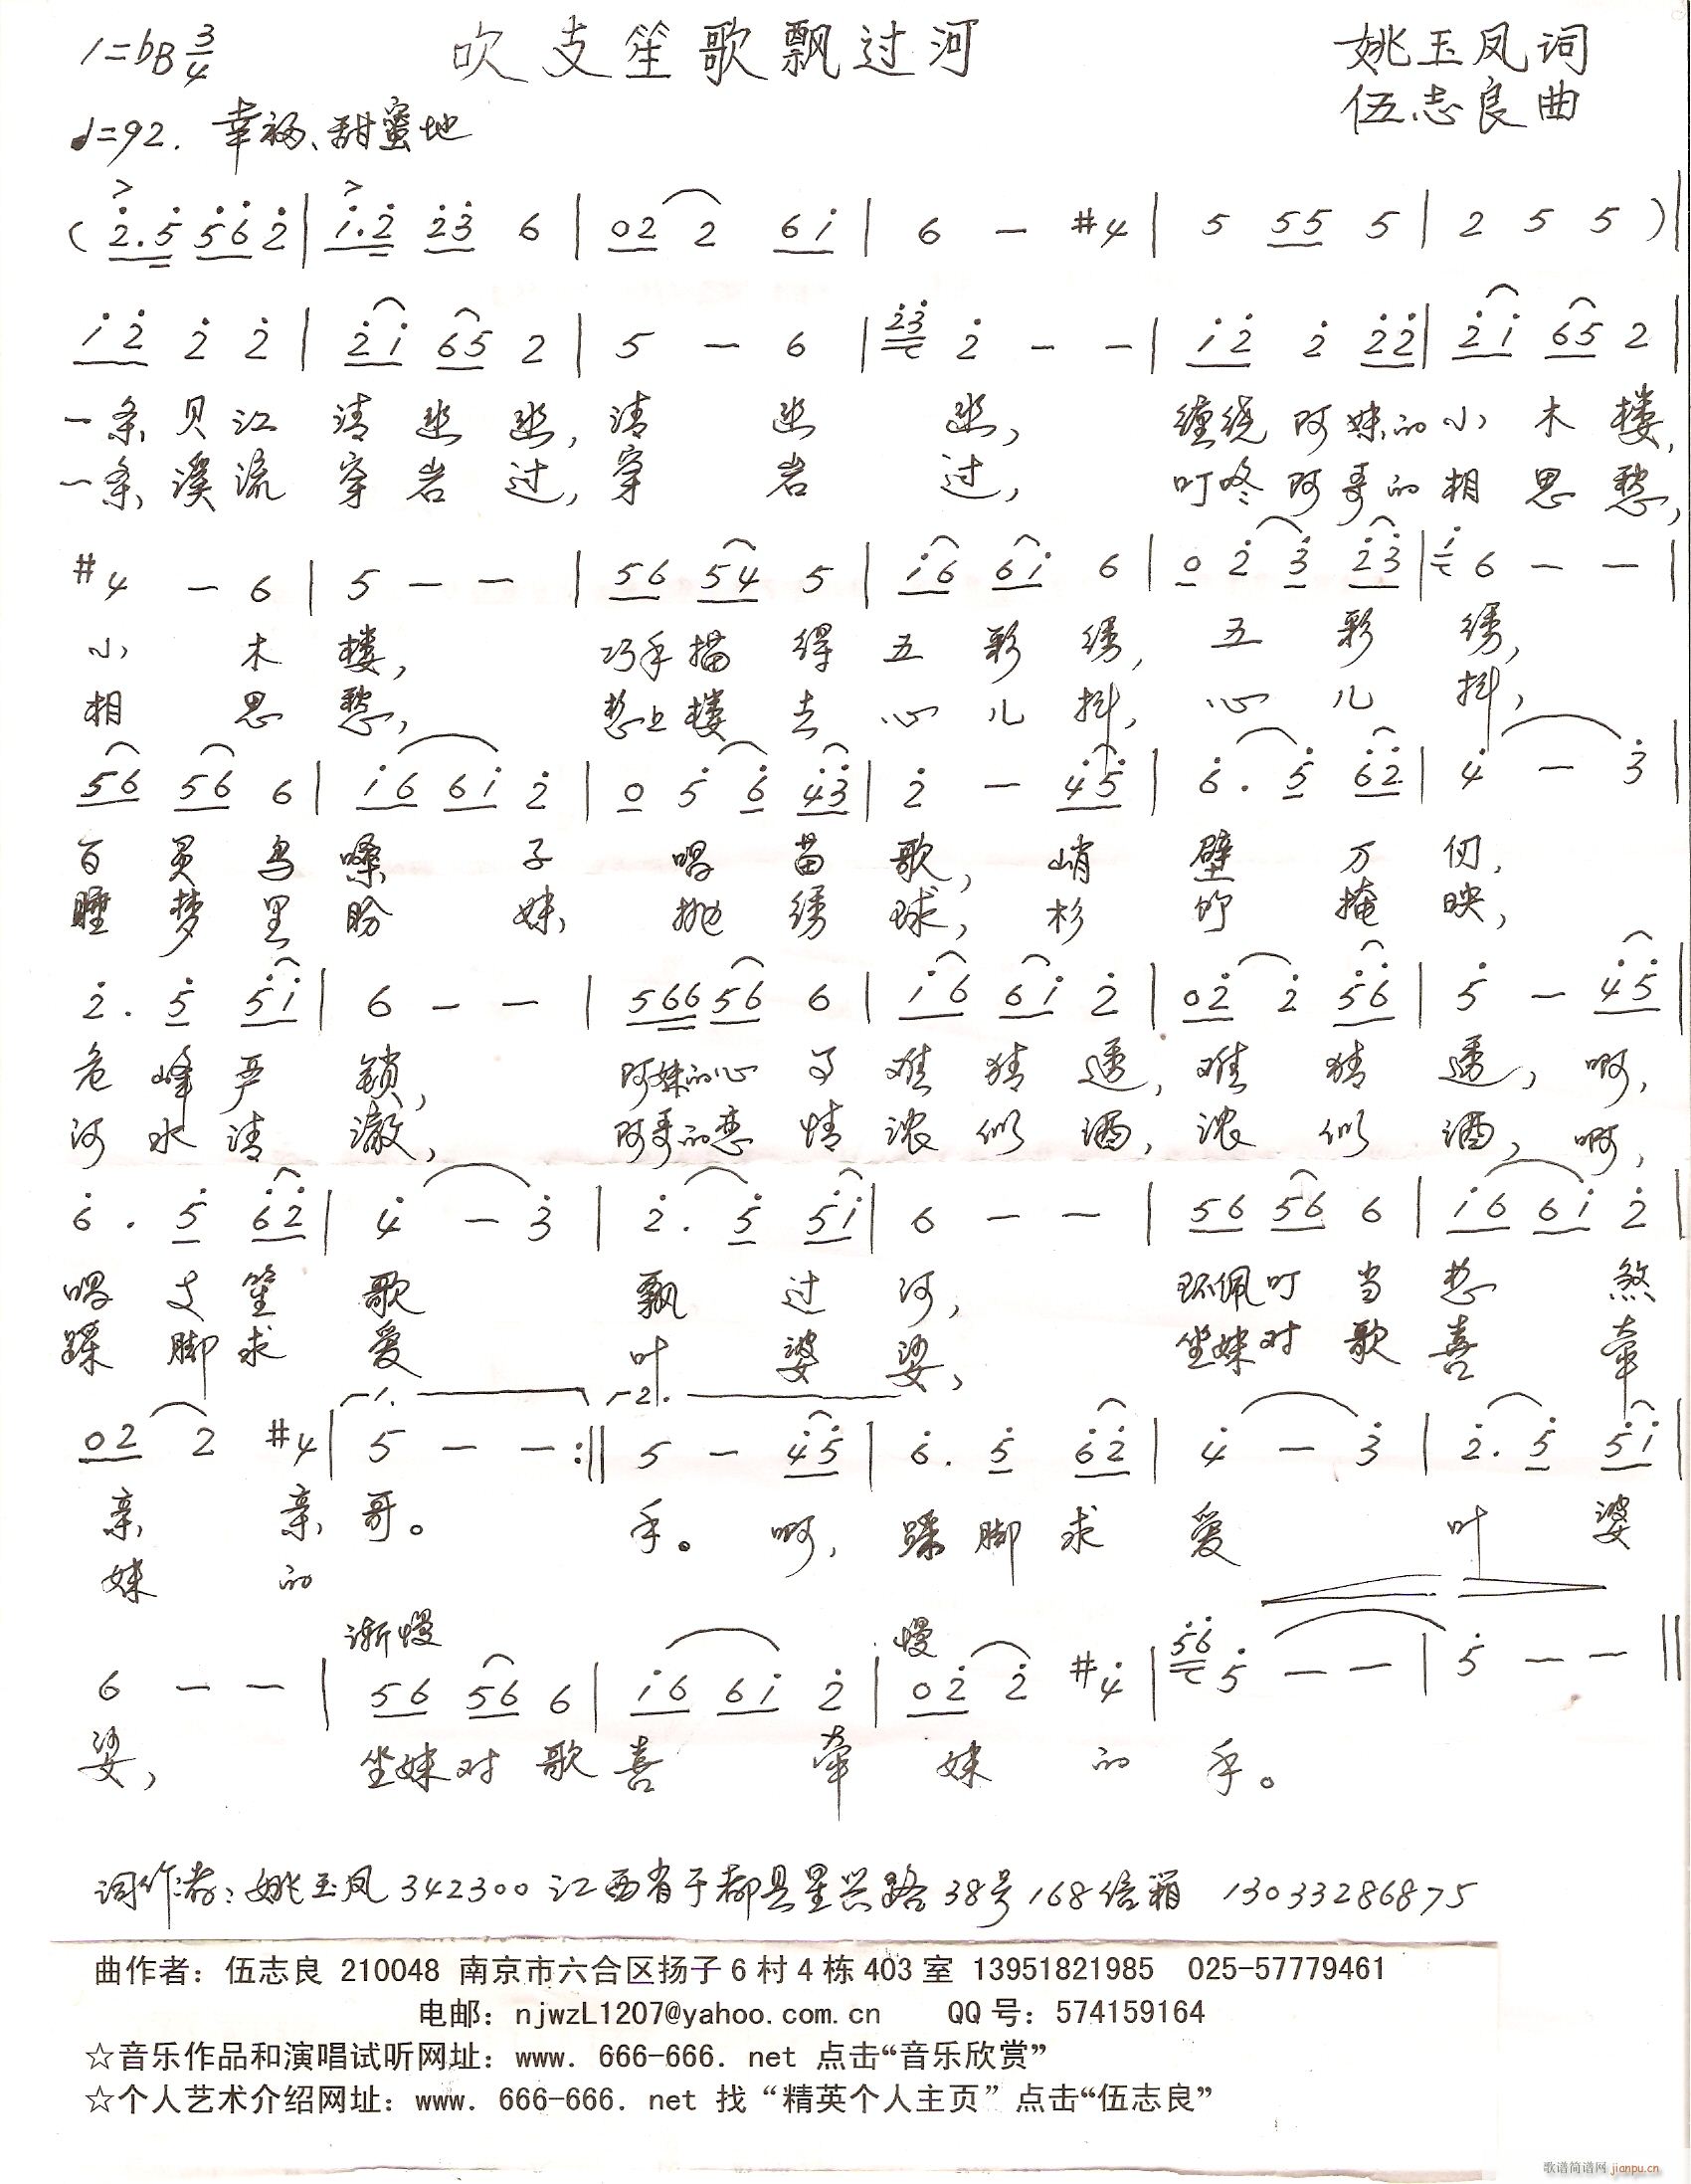 1=bB 3/4 吹支笙歌飘过河 姚玉凤词
♩=92. 幸福、甜蜜地 伍志良曲
( 2.5 562 | 1.2 23 6 | 02 2 61 | 6 — #4 | 5 55 5 | 2 5 5 ) |
12 2 2 | 21 65 2 | 5 — 6 | 23 2 — — | 12 2 22 | 21 65 2 |
一条贝江清悠悠,清悠悠, 缠绕阿妹的小木楼,
一条溪流穿岩过,穿岩过, 叮咚阿哥的相思愁,
#4 — 6 | 5 — — | 56 54 5 | 16 61 6 | 0 2 3 23 | 1 6 — — |
小木楼, 巧手描得五彩绣,五彩绣,
相思愁, 愁上楼去心儿抖,心儿抖,
56 56 6 | 16 61 2 | 0 5 6 43 | 2 — 45 | 6. 5 62 | 4 — 3 |
百灵鸟嗓子唱苗歌,峭壁万仞,
睡梦里盼妹抛绣球,杉竹掩映,
2. 5 51 | 6 — — | 566 56 6 | 16 61 2 | 02 2 56 | 5 — 45 |
危峰严锁, 阿妹的心事难猜透,难猜透,啊,
河水清澈, 阿哥的恋情浓似酒,浓似酒,啊,
6. 5 62 | 4 — 3 | 2. 5 51 | 6 — — | 56 56 6 | 16 61 2 |
唱支笙歌飘过河, 环佩叮当愁煞
跺脚求爱叶婆娑, 坐妹对歌喜牵
1. 2.
02 2 #4 | 5 — — :‖ 5 — 45 | 6. 5 62 | 4 — 3 | 2. 5 51 |
亲亲哥。 手。啊,跺脚求爱叶婆
妹的
渐慢 慢
6 — — | 56 56 6 | 16 61 2 | 02 2 #4 | 56 5 — — | 5 — — ‖
娑, 坐妹对歌喜牵妹的手。
词作者:姚玉凤 342300 江西省于都县星兴路38号168信箱 13033286875
曲作者：伍志良 210048 南京市六合区扬子6村4栋403室 13951821985 025-57779461
电邮：njwzL1207@yahoo.com.cn QQ号：574159164
☆音乐作品和演唱试听网址：www. 666-666. net 点击“音乐欣赏”
☆个人艺术介绍网址：www. 666-666. net 找“精英个人主页”点击“伍志良”
歌谱简谱网 jianpu.cn